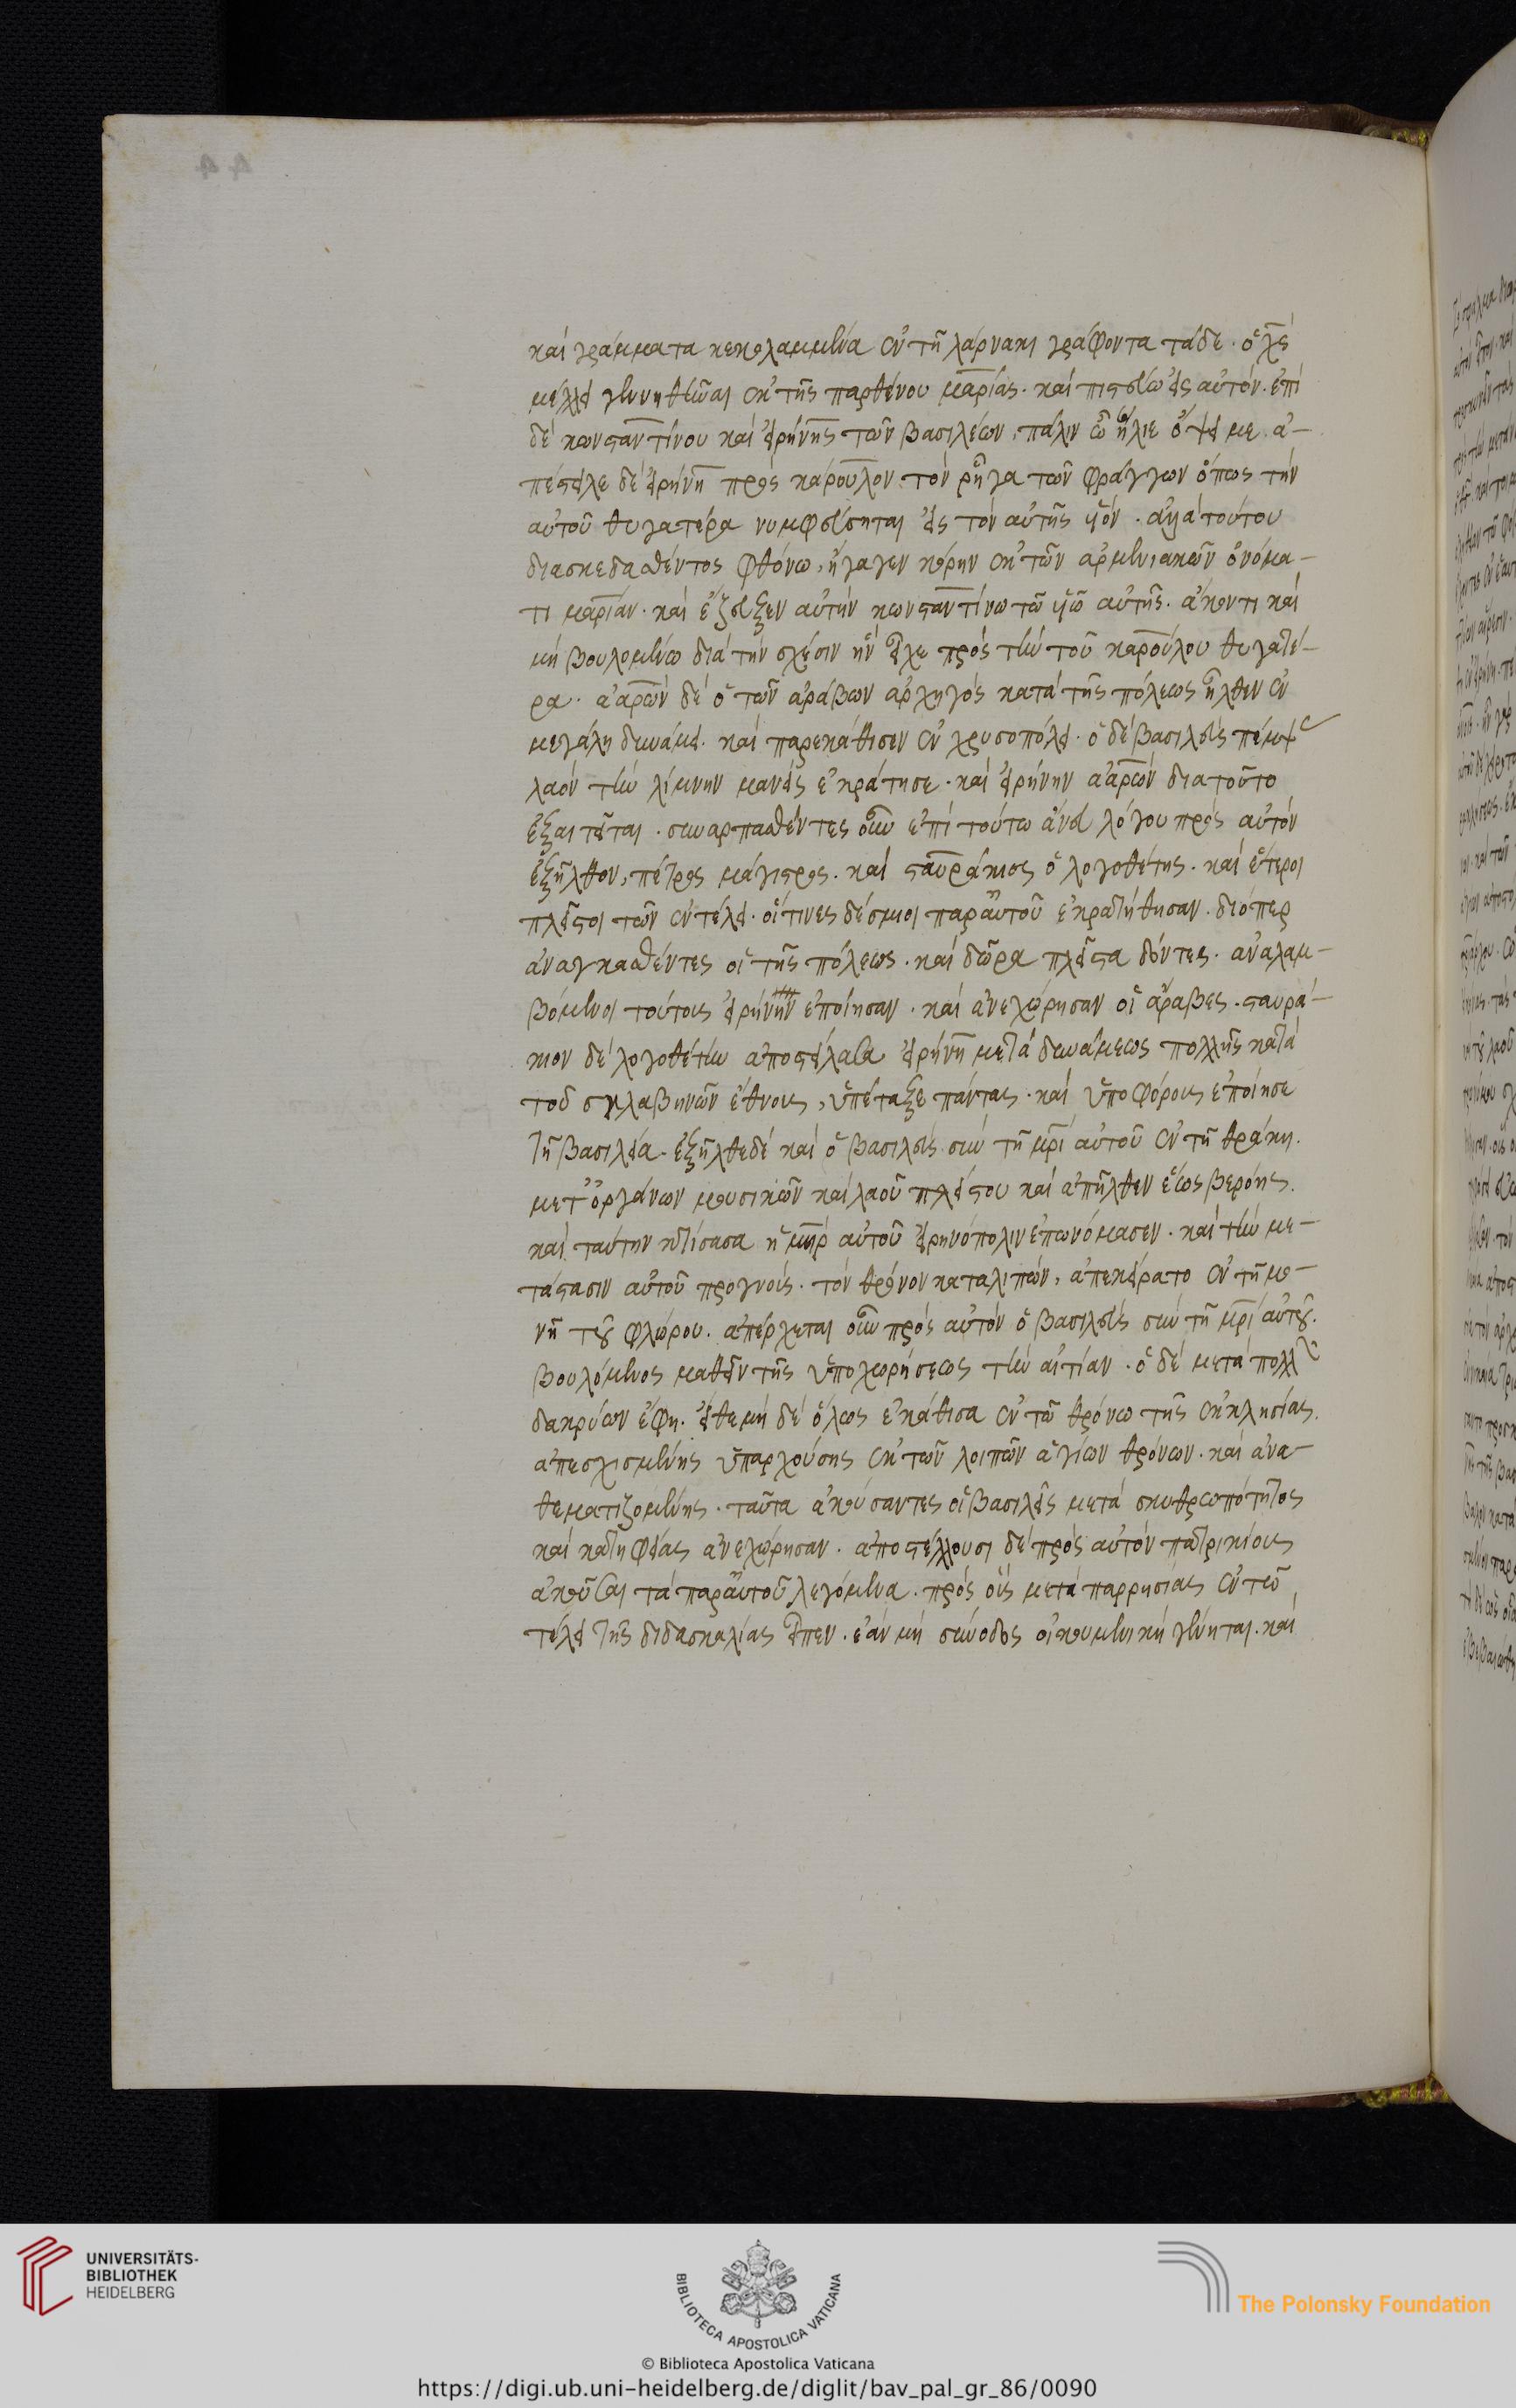 καὶ γράμματα κεκολαμμένα ἐν τῆ λάρνακι γράφοντα τάδε· ὁ χς
μέλλει γεννηθῆναι ἐκ τῆς παρθένου μαρίας· καὶ πιστεύω εἰς αὐτόν· ἐπὶ
δὲ κωνσταντίνου καὶ εἰρήνης τῶν βασιλέων, πάλιν ὦ ἥλιε ὄψει με. ἀ-
πέστειλε δὲ εἰρήνη πρὸς κάρουλον τὸν ῥῆγα τῶν φράγγων ὅπως τὴν
αὐτοῦ θυγατέρα νυμφεύσηται εἰς τὸν αὐτῆς υἱόν· ἀλλὰ τούτου
διασκεδασθέντος φθόνω, ἤγαγεν κόρην ἐκ τῶν ἀρμενιακῶν ὀνόμα-
τι μαρίαν· καὶ ἔζευξεν αὐτὴν κωνσταντίνω τῶ υἱῶ αὐτῆς· ἄκοντι καὶ
μὴ βουλομένω διὰ τὴν σχέσιν ἣν εἶχε πρὸς τὴν τοῦ καρούλου θυγατέ-
ρα· ἀαρὼν δὲ ὁ τῶν ἀράβων ἀρχηγὸς κατὰ τῆς πόλεως ἦλθεν ἐν
μεγάλη δυνάμει· καὶ παρεκάθισεν ἐν χρυσοπόλει· ὁ δὲ βασιλεὺς πέμψας
λαὸν τὴν λίμνην μανεὶς ἐκράτησε· καὶ εἰρήνην ἀαρὼν διατοῦτο
ἐξαιτεῖται· συναρπασθέντες οὖν ἐπὶ τούτω ἄνευ λόγου πρὸς αὐτὸν
ἐξῆλθον, πέτρος μάγιστρος· καὶ σταυράκιος ὁ λογοθέτης· καὶ ἕτεροι
πλεῖστοι τῶν ἐν τέλει· οἵτινες δέσμιοι παρ' αὐτοῦ ἐκρατήθησαν· διόπερ
ἀναγκασθέντες οἱ τῆς πόλεως· καὶ δῶρα πλεῖστα δόντες· ἀναλαμ-
βόμενοι τούτους εἰρήνην ἐποίησαν· καὶ ἀνεχώρησαν οἱ ἄραβες· σταυρά-
κιον δὲ λογοθέτην ἀποστείλασα εἰρήνη μετὰ δυνάμεως πολλῆς κατὰ
τοῦ σκλαβηνῶν ἔθνους, ὑπέταξε πάντας· καὶ ὑποφόρους ἐποίησε
τῆ βασιλεία· ἐξῆλθε δὲ καὶ ὁ βασιλεὺς σὺν τῆ μρὶ αὐτοῦ ἐν τῆ θράκη·
μετ' ὀργάνων μουσικῶν καὶ λαοῦ πλείστου καὶ ἀπῆλθεν ἕως βερόης.
καὶ ταύτην κτίσασα ἡ μηρ αὐτοῦ εἰρηνόπολιν ἐπωνόμασεν· καὶ τὴν με-
τάστασιν αὐτοῦ προγνοὺς· τὸν θρόνον καταλιπὼν, ἀπεκείρατο ἐν τῆ μο-
νῆ τοῦ φλώρου· ἀπέρχεται οὖν πρὸς αὐτὸν ὁ βασιλεὺς σὺν τῆ μρὶ αὐτοῦ.
βουλόμενος μαθεῖν τῆς ὑποχωρήσεως τὴν αἰτίαν· ὁ δὲ μετὰ πολλῶν
δακρύων ἔφη· εἴθε μὴ δὲ ὅλως ἐκάθισα ἐν τῶ θρόνω τῆς ἐκκλησίας.
ἀπεσχισμένης ὑπαρχούσης ἐκ τῶν λοιπῶν ἁγίων θρόνων· καὶ ἀνα-
θεματιζομένης· ταῦτα ἀκούσαντες οἱ βασιλεῖς μετὰ σκυθρωπότητος
καὶ κατηφείας ἀνεχώρησαν· ἀποστέλλουσι δὲ πρὸς αὐτὸν πατρικίους
ἀκοῦσαι τὰ παρ' αὐτοῦ λεγόμενα· πρὸς οὓς μετὰ παρρησίας ἐν τῶ
τέλει τῆς διδασκαλίας εἶπεν· ἐὰν μὴ σύνοδος οἰκουμενικὴ γένηται· καὶ
UNIVERSITÄTS-
BIBLIOTHEK
HEIDELBERG
BIBLIOTECA APOSTOLICA VATICANA
The Polonsky Foundation
© Biblioteca Apostolica Vaticana
https://digi.ub.uni-heidelberg.de/diglit/bav_pal_gr_86/0090